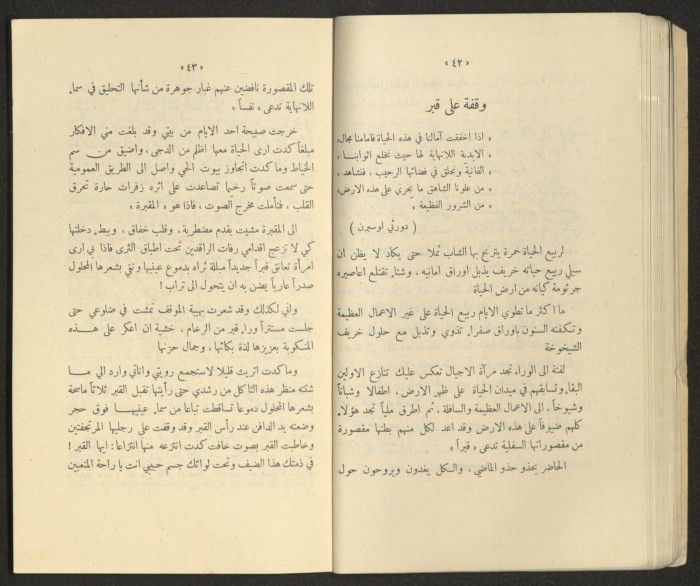 « ٤٢ »
وقفة على قبر
« اذا اخفقت آمالنا في هذه الحياة فامامنا مجال
« الابدية اللانهاية لها حيث نخلع اثوابنا
« الفانية ونحلق في فضائها الرحيب، فنشاهد
« من علونا الشاهق ما يجري على هذه الارض
« من الشرور الفظيعة »
( دورثي اوسبرن )
لربيع الحياة خمرة يترنح بها الشاب ثملا حتى يكاد لا يظن ان
سيلي ربيع حياته خريف يذبل اوراق امانيه، وشتاء تقتلع اعاصيره
جرثومة كيانه من ارض الحياة
ما اكثر ما تنطوي الايام ربيع الحياة على غير الاعمال العظيمة
وتكفنه السنون باوراق صفراء تذوي وتذبل مع حلول خريف
الشيخوخة
لفتة الى الوراء تجد مرآة الاجيال تعكس عليك تنازع الاولين
البقاء وتسابقهم في ميدان الحياة على ظهر الارض، اطفالا وشباناً
وشيوخاً، الى الاعمال العظيمة والسافلة، ثم اطرق ملياً تجد هؤلاء
كلهم ضيوفاً على هذه الارض وقد اعد لكل منهم بطنها مقصورة
من مقصوراتها السفلية تدعى « قبراً »
الحاضر يحذو حذو الماضي، والكل يغدون ويروحون حول
« ٤٣ »
تلك المقصورة نافضين عنهم غبار جوهرة من شأنها التحليق في سماء
اللانهاية تدعى « نفساً »
خرجت صبيحة احد الايام من بيتي وقد بلغت مني الافكار
مبلغاً كدت ارى الحياة معها اظلم من الدجى، واضيق من سم
الخياط وما كدت اتجاوز بيوت الحي واصل الى الطريق العمومية
حتى سمعت صوتاً رخيما تصاعدت على اثره زفرات حارة تحرق
القلب، فتأملت مخرج الصوت، فاذا هو « المقبرة »
الى المقبرة مشيت بقدم مضطربة، وقلب خفاق، وببطء دخلتها
كي لا تزعج اقدامي رفات الراقدين تحت اطباق الثرى فاذا بي ارى
امرأة تعانق قبراً جديداً مبللة ثراه بدموع عينيها وتقي بشعرها المحلول
صدراً عارياً يضن به ان يتحول الى تراب !
واني لكذلك وقد شعرت بهيبة الموقف تمشت في ضلوعي حتى
جلست مستتراً وراء قبر من الرخام، خشية ان اعكر على هذه
المنكوبة بعزيزها لذة بكائها، وجمال حزنها
وما كدت اتريث قليلا لاستجمع رويتي واناتي وارد الي ما
شتته منظر هذه الثاكل من رشدي حتى رأيتها تقبل القبر ثلاثاً ماسحة
بشعرها المحلول دموعا تساقطت تباعا من سماء عينيها فوق حجر
وضعته يد الدافن عند رأس القبر وقد وقفت على رجليها المرتجفتين
وخاطبت القبر بصوت خافت كدت انتزعه منها انتزاعا : ايها القبر !
في ذمتك هذا الضيف وتحت لوائك جسم حبيبي انت يا راحة المتعبين